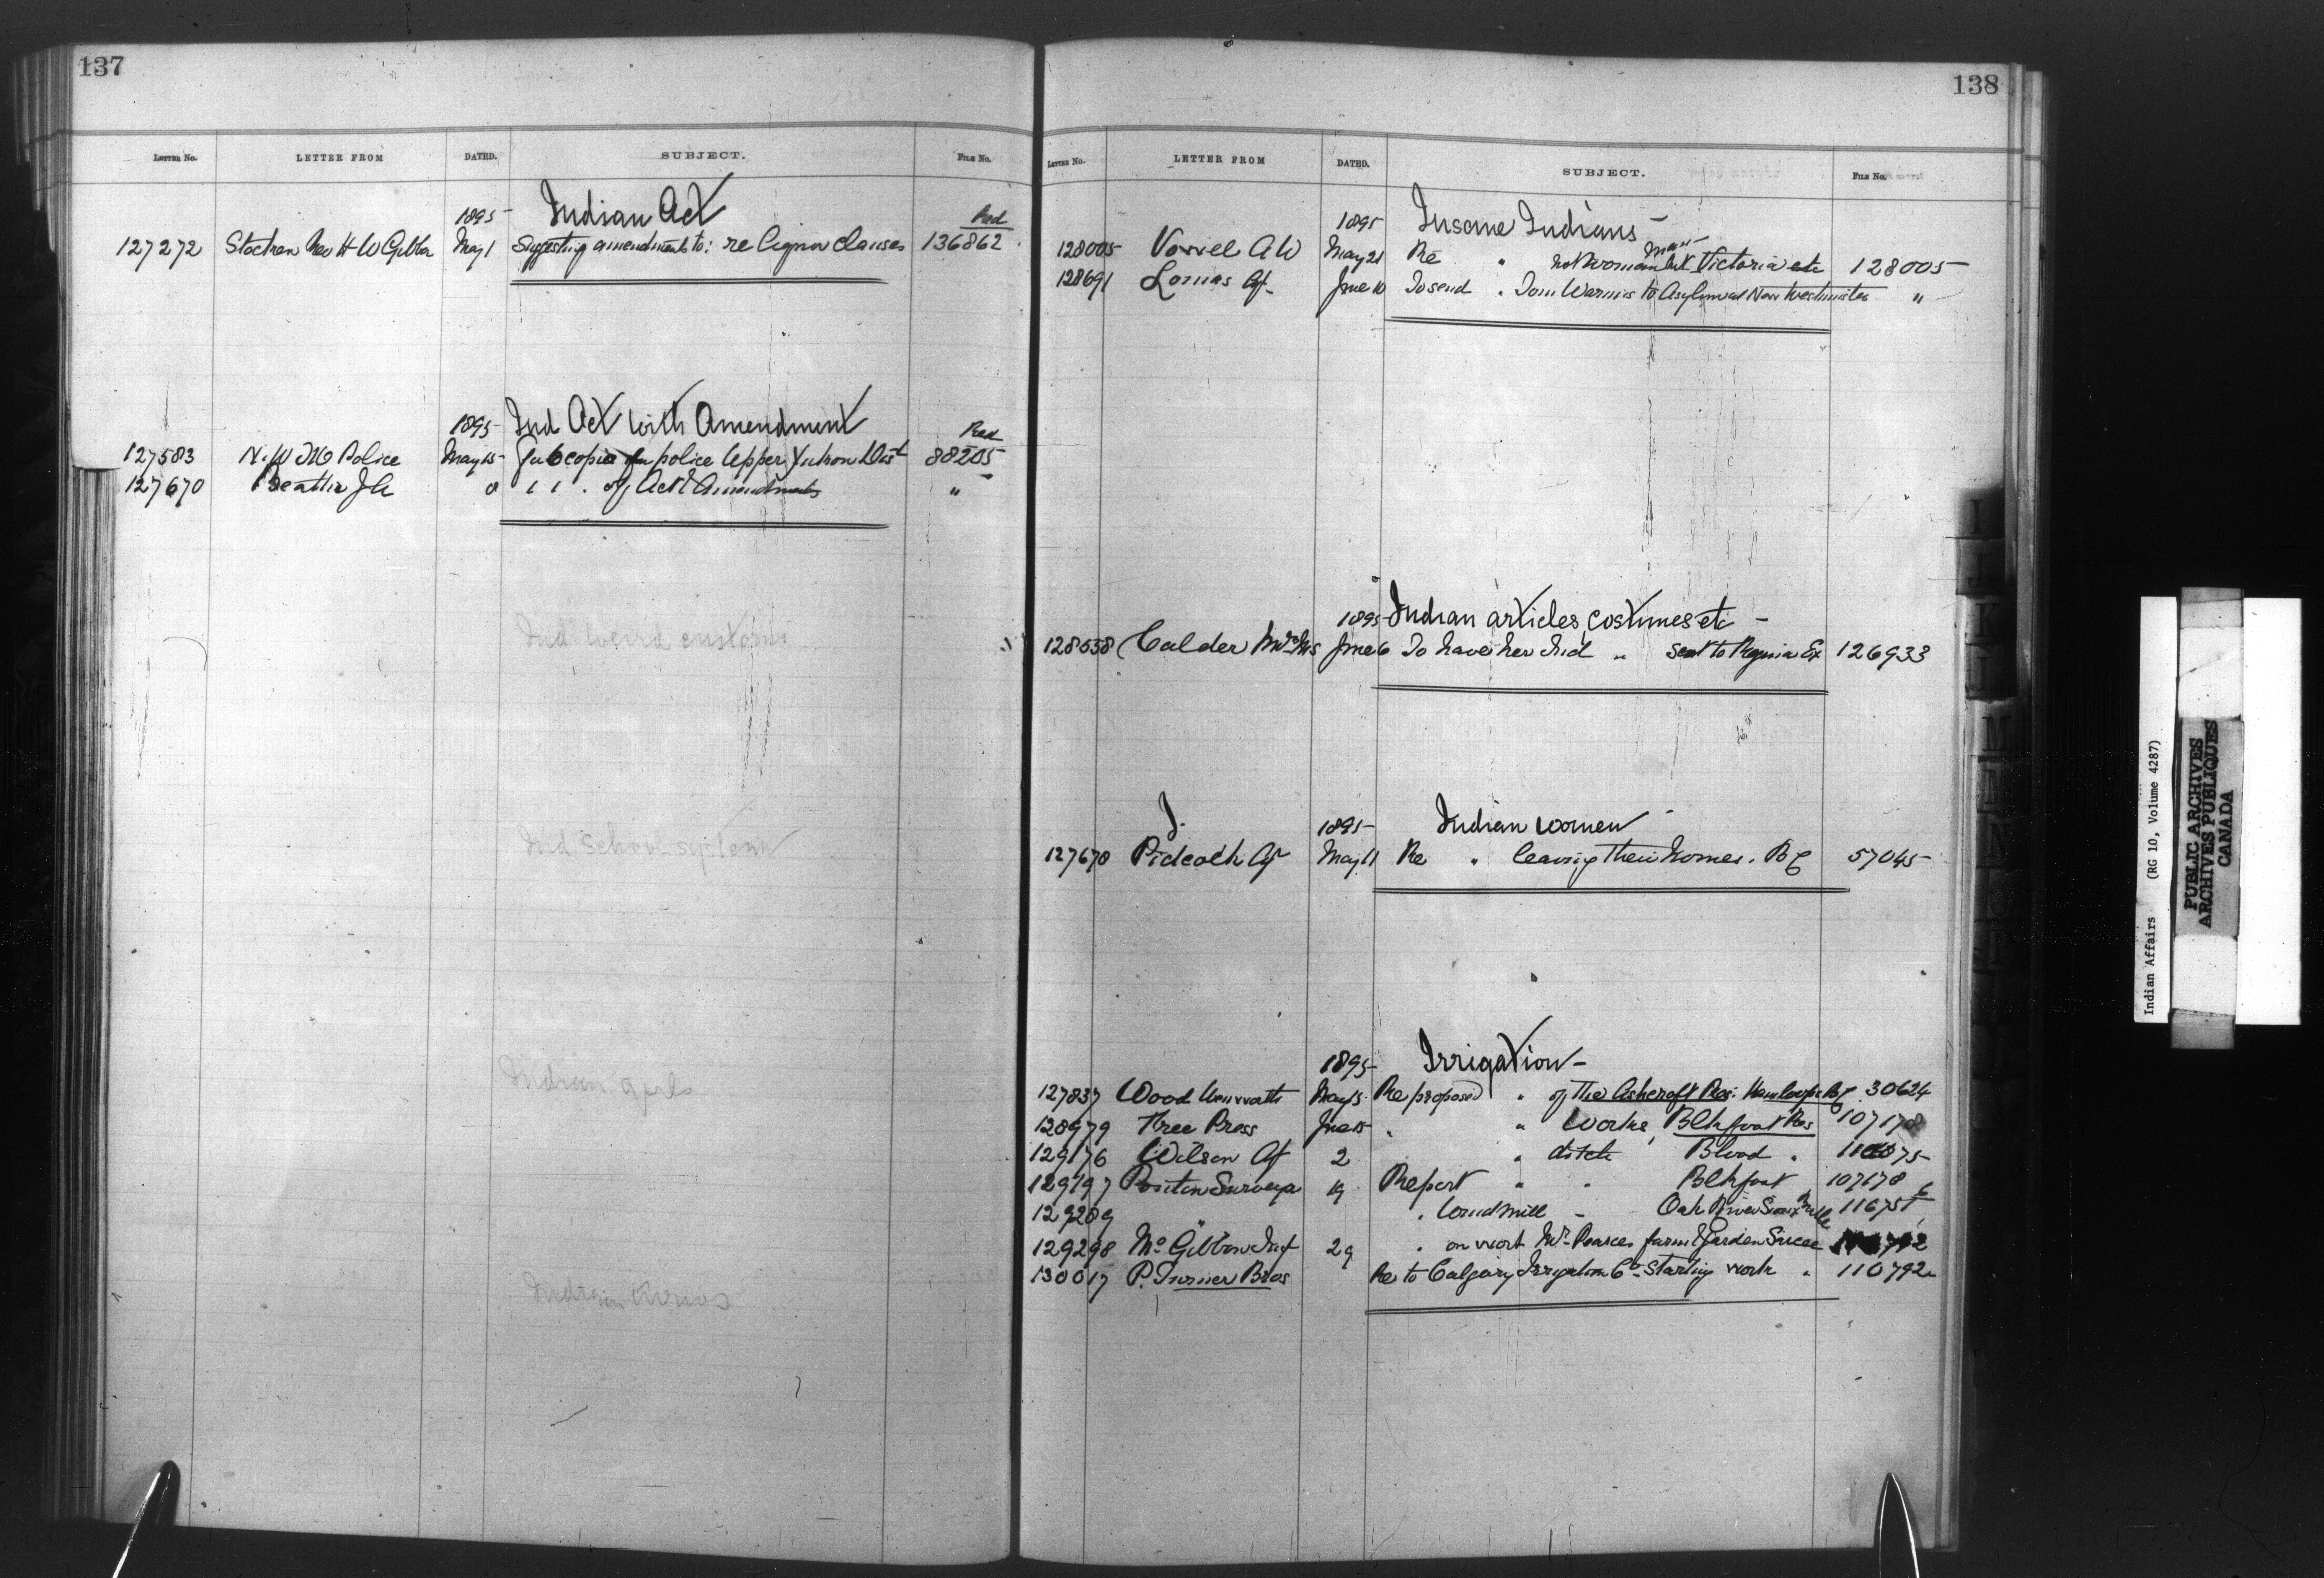 137
LETTER No. LETTER FROM DATED. SUBJECT. FILE No.
1895 Indian Act Red
127272 Rev H W May 1 Suggesting amendments to: re liquor clauses 136862
1895 Ind Act with Amendment Red
127583 N. W. M Police May 15 6 copies for police Upper Yukon Dist 88205
127670 Beattie J A " " " . of Act & Amendments "
Ind weird customs
Ind School system
Indian girls
Indian
138
LETTER No. LETTER FROM DATED. SUBJECT. FILE No.
1895 Insane Indians
man
128005 Vowel A W May 21 Re " not woman but Victoria etc 128005
128691 Lomas Agt June 10 To send " Tom to Asylum at New Westminster "
1895 Indian articles, costumes etc
128558 Calder Mrs June 6 To have her Ind " sent to Regina Ex 126933
J.
1895 Indian women
127670 Pidcock Agt May 11 Re " leaving their homes. B C 57045
1895 Irrigation
127837 Wood Wentworth May 15 Re proposed " of the Ashcroft Res: Kamloops Agy 30624
128979 Free Press June 15 " " Works, Blkfoot Res 107178
129176 Wilson Agt 2 " ditch Blood "
129197 Ponton Surveyor 19 Report " " Blkfoot 107178
129289 " " Windmill - Oak River Sioux 116751
129298 McGibbon Insp 29 " on work Mr Pearces farm & Garden
130017 P. Turner Bros Re to Calgary Irrigation Co Starting work " 110792
I
J
K
L
M
Indian Affairs (RG 10, Volume 4287)
PUBLIC ARCHIVES
ARCHIVES PUBLIQUES
CANADA